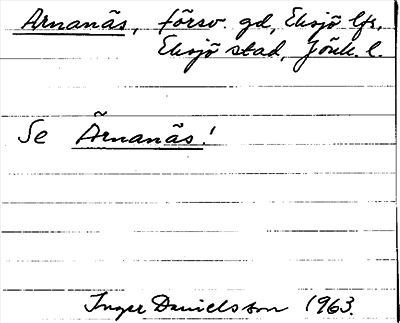 Arnanäs, försv. gd, Eksjö lfs,
Eksjö stad, Jönk. l.
Se Ärnanäs!
Inger Danielsson 1963.